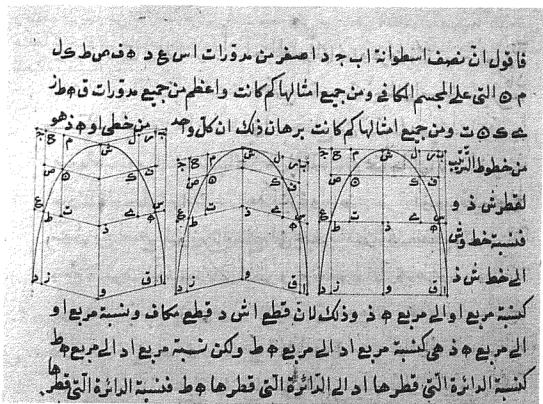 فاقول ان نصف اسطوانة ا ب ج د اصغر من مدورات ا س ع د ه ف ص ط ك ل
م ن التى على المجسم المكافى ومن جميع امثالها كم كانت واعظم من جميع مدورات ق ه ط ز
ى ك ن ت ومن جميع امثالها كم كانت برهان ذلك ان كل واحد من خطى ا و ه ذ هو
من خطوط الترتيب
لقطر ش ذ و
فنسبة خط و ش
الى خط ش ذ
كنسبة مربع ا و الى مربع ه ذ وذلك لان قطع ا ش د قطع مكاف ونسبة مربع ا و
الى مربع ه ذ هى كنسبة مربع ا د الى مربع ه ط ولكن نسبة مربع ا د الى مربع ه ط
كنسبة الدائرة التى قطرها ا د الى الدائرة التى قطرها ه ط فنسبة الدائرة التى قطرها